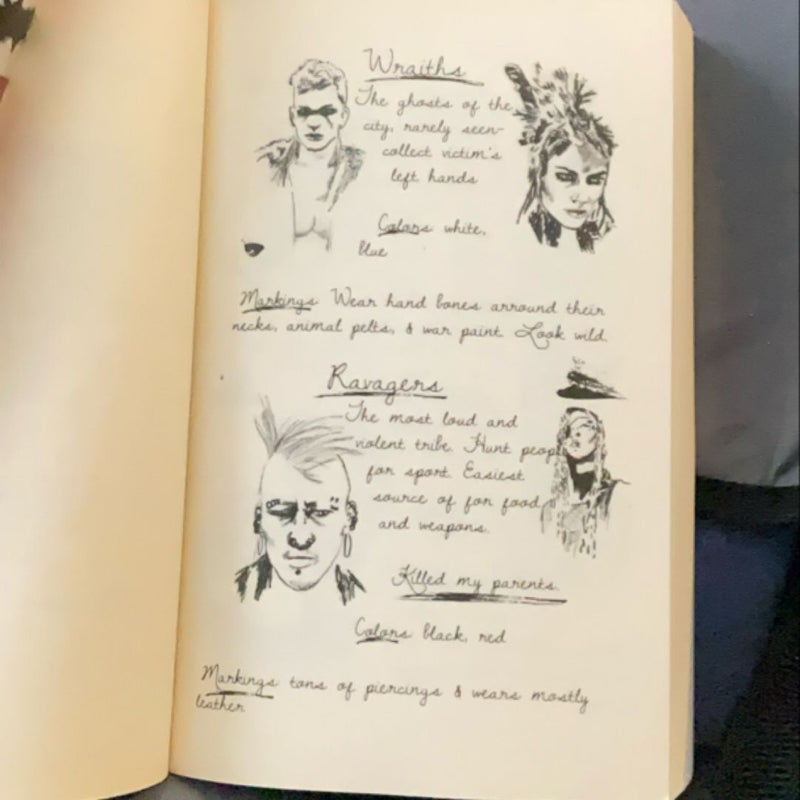 Wraiths
The ghosts of the
city, rarely seen-
collect victim's
left hands
Colors white,
blue
Markings Wear hand bones arround their
necks, animal pelts, & war paint. Look wild.
Ravagers
The most loud and
violent tribe. Hunt peop
for sport. Easiest
source of for food
and weapons.
Killed my parents.
Colors black, red
Markings tons of piercings & wears mostly
leather